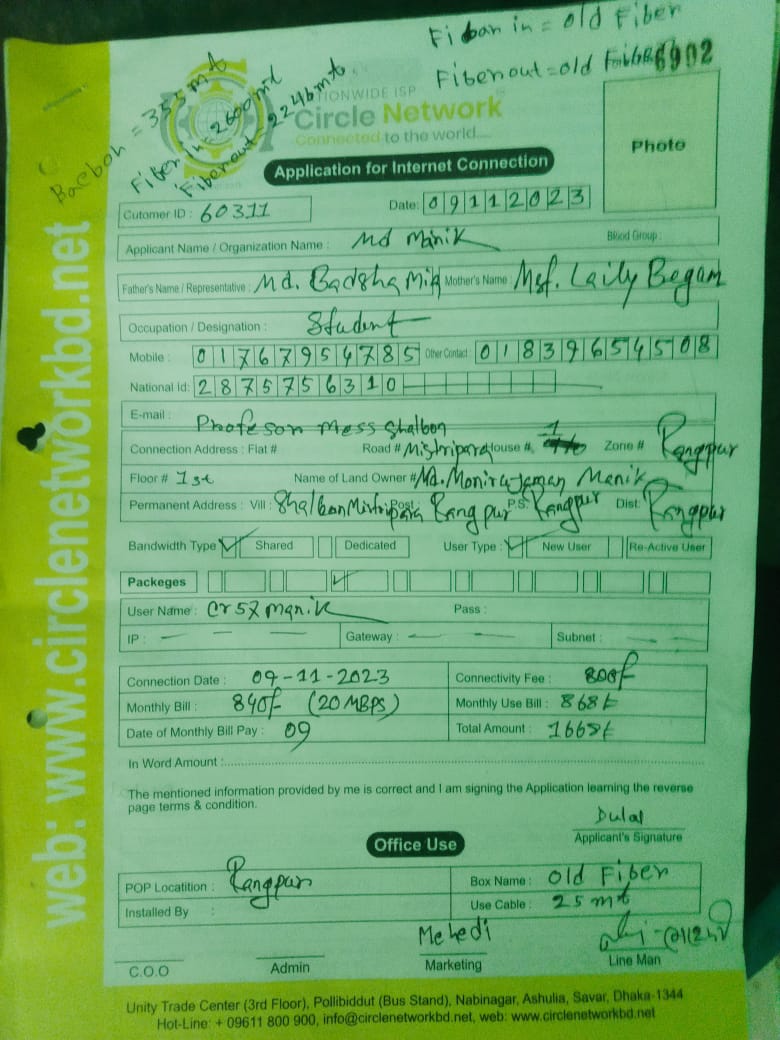 Fiban in = old Fiber
Fiberout = old Fiber 6902
Bacbon = 355 mt
Fiber in = 2600 mt
Fiberout = 2246 mt
NATIONWIDE ISP
Circle Network
Connected to the world....
Photo
Application for Internet Connection
Cutomer ID : 60311 Date: 09112023
Applicant Name / Organization Name : Md Manik Blood Group :
Father's Name / Representative : Md. Badsha Mia Mother's Name : Mst. Laily Begam
Occupation / Designation : Student
Mobile : 01767954785 Other Contact : 01839654508
National Id: 2875756310
E-mail :
Profeson mess Shalbon
Connection Address : Flat # Road # Mistripara House # 1 Zone # Rangpur
Floor # 1st Name of Land Owner # Md. Monirujaman Manik
Permanent Address : Vill : Shalbon Mistripara Post: Rangpur P.S: Rangpur Dist: Rangpur
Bandwidth Type ✓ Shared Dedicated User Type : ✓ New User Re-Active User
Packeges ✓
User Name : Cr57manik Pass :
IP : — — — Gateway : — — — Subnet : — —
Connection Date : 09-11-2023 Connectivity Fee : 800/-
Monthly Bill : 840/- (20 MBPS) Monthly Use Bill : 868 t
Date of Monthly Bill Pay : 09 Total Amount : 1668 t
In Word Amount :
The mentioned information provided by me is correct and I am signing the Application learning the reverse
page terms & condition.
Dulal
Applicant's Signature
Office Use
POP Locatition : Rangpur Box Name : old Fiber
Installed By : Use Cable : 25 mt
Mehedi
C.O.O Admin Marketing Line Man
Unity Trade Center (3rd Floor), Pollibiddut (Bus Stand), Nabinagar, Ashulia, Savar, Dhaka-1344
Hot-Line: + 09611 800 900, info@circlenetworkbd.net, web: www.circlenetworkbd.net
web: www.circlenetworkbd.net